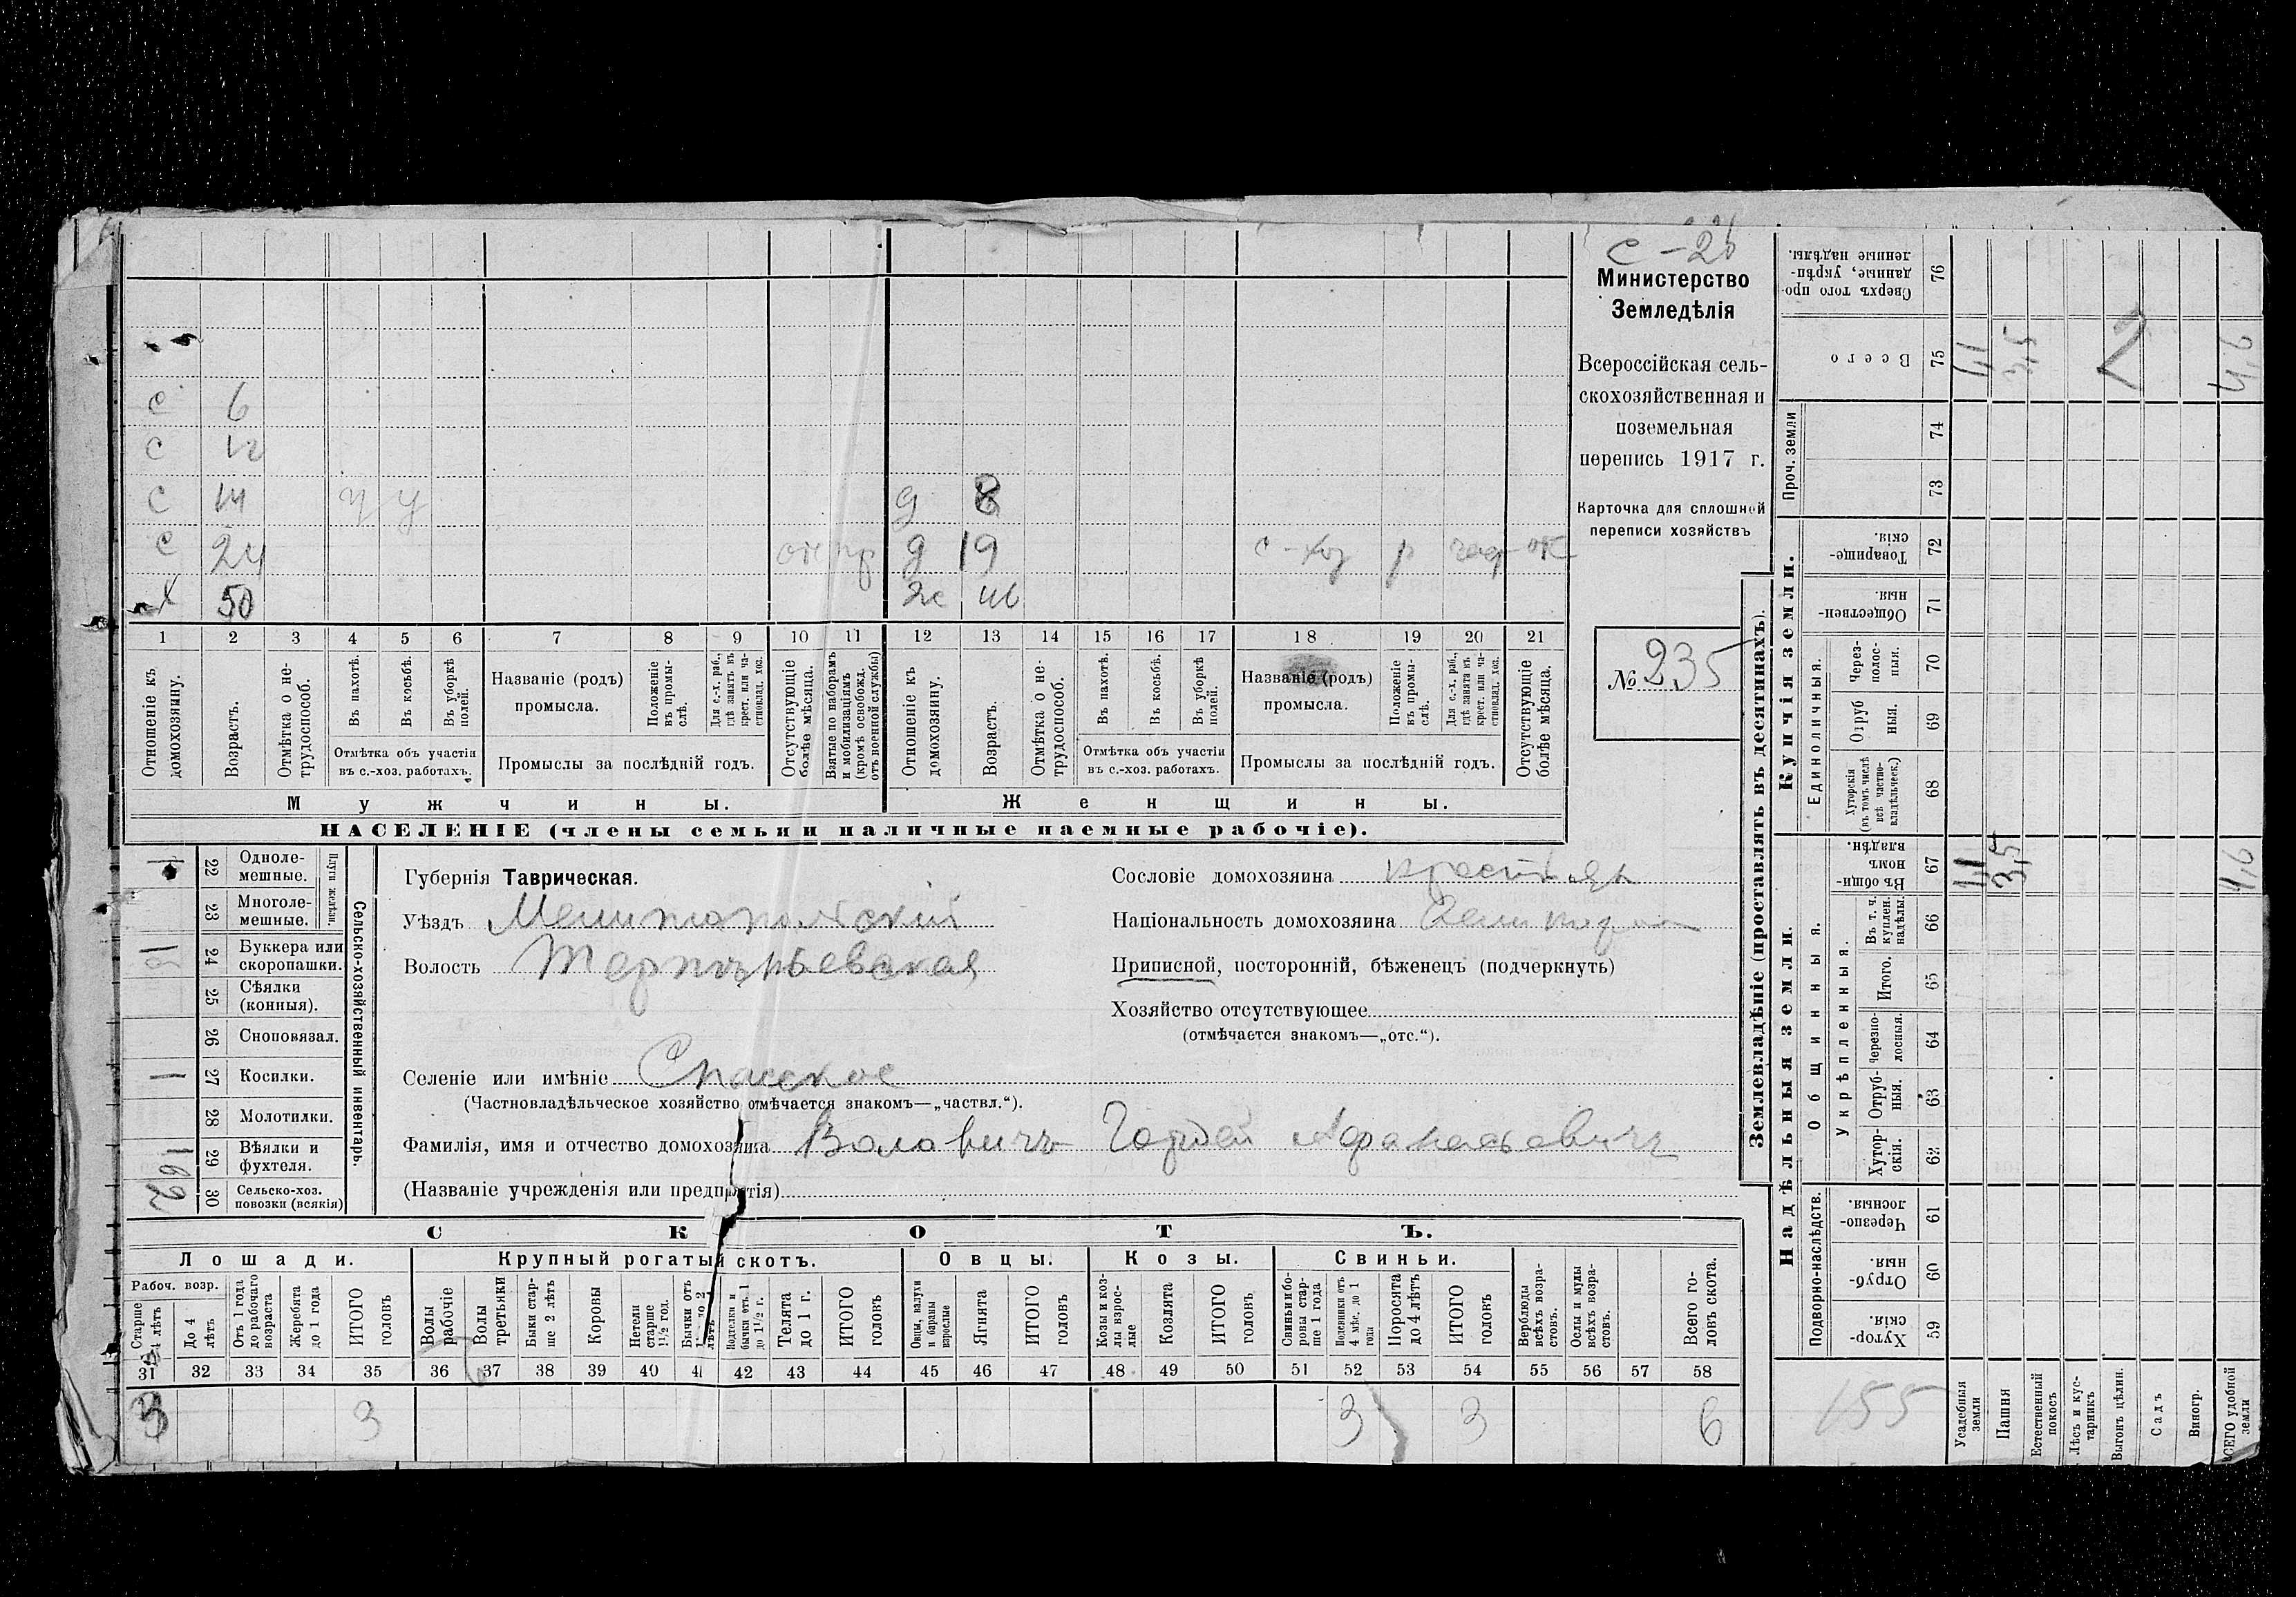 с - 26
Министерство
Земледѣлія
Всероссійская сель-
скохозяйственная и
поземельная
перепись 1917 г.
Карточка для сплошной
переписи хозяйствъ
№ 235
с 6
с 12
с 14 ч у д 8
с 24 д 19 с-хоз р
х 50 ж 46
1 2 3 4 5 6 7 8 9 10 11 12 13 14 15 16 17 18 19 20 21
Отношеніе къ домохозяину.
Возрастъ.
Отмѣтка о не-трудоспособ.
Въ пахотѣ.
Въ косьбѣ.
Въ уборкѣ полей.
Отмѣтка объ участіи въ с.-хоз. работахъ.
Названіе (родъ) промысла.
Положеніе въ промы-слѣ.
Для с.-х. раб., гдѣ занятъ въ крест. или ча-стновлад. хоз.
Промыслы за послѣдній годъ.
Отсутствующіе болѣе мѣсяца.
Взятые по наборамъ и мобилизаціямъ (кромѣ освобожд. отъ военной службы)
Отношеніе къ домохозяину.
Возрастъ.
Отмѣтка о не-трудоспособ.
Въ пахотѣ.
Въ косьбѣ.
Въ уборкѣ полей.
Отмѣтка объ участіи въ с.-хоз. работахъ.
Названіе (родъ) промысла.
Положеніе въ промы-слѣ.
Для с.-х. раб., гдѣ занята въ крест. или ча-стновлад. хоз.
Промыслы за послѣдній годъ.
Отсутствующіе болѣе мѣсяца.
Мужчины. Женщины.
НАСЕЛЕНІЕ (члены семьи и наличные наемные рабочіе).
Сельско-хозяйственный инвентарь.
Плуги желѣзн.
1 22 Одноле-мешные.
23 Многоле-мешные.
24 Буккера или скоропашки.
25 Сѣялки (конныя).
26 Сноповязал.
1 27 Косилки.
28 Молотилки.
1 29 Вѣялки и фухтеля.
30 Сельско-хоз. повозки (всякія)
Губернія Таврическая.
Уѣздъ Мелитопольскій
Волость Терпѣньевская
Селеніе или имѣніе Спасское
(Частновладѣльческое хозяйство отмѣчается знакомъ—„частвл.“).
Фамилія, имя и отчество домохозяина Воловичъ Гордей Афанасьевичъ
(Названіе учрежденія или предпріятія)
Сословіе домохозяина крестьян
Національность домохозяина Великорос
Приписной, посторонній, бѣженецъ (подчеркнуть)
Хозяйство отсутствующее
(отмѣчается знакомъ—„отс.“).
СКОТЪ.
Лошади. Крупный рогатый скотъ. Овцы. Козы. Свиньи.
Рабоч. возр.
Старше 4 лѣтъ
До 4 лѣтъ
Отъ 1 года до рабочаго возраста
Жеребята до 1 года
ИТОГО головъ
Волы рабочіе
Волы третьяки
Быки стар-ше 2 лѣтъ
Коровы
Нетели старше 1½ год.
Подтелки и бычки отъ 1 до 1½ г.
Телята до 1 г.
ИТОГО головъ
Овцы, валухи и бараны взрослые
Ягнята
ИТОГО головъ
Козы и коз-лы взрос-лые
Козлята
ИТОГО головъ
Свиньи и бо-ровы стар-ше 1 года
Подсвинки отъ 4 мѣс. до 1 года
Поросята до 4 лѣтъ
ИТОГО головъ
Верблюды всѣхъ возра-стовъ.
Ослы и мулы всѣхъ возра-стовъ.
Всего го-ловъ скота.
31 32 33 34 35 36 37 38 39 40 41 42 43 44 45 46 47 48 49 50 51 52 53 54 55 56 57 58
3 3 3 3 6
Землевладѣніе (проставлять въ десятинахъ).
Купчія земли.
Надѣльныя земли.
Сверхъ того про-данные, укрѣп-ленные надѣлы. 76
Всего 75 1,1 3,5 4,6
Проч. земли 74 73
Товарище-скія. 72
Обществен-ныя. 71
Единоличныя.
Через-полос-ныя. 70
Отруб ныя. 69
Хуторскія (въ томъ числѣ всѣ частно-владѣльческ.) 68
Общинныя.
Въ общи-номъ владѣн. 67 1,1 3,5 4,6
Укрѣпленныя.
Въ т. ч. куплен. надѣлы. 66
Итого. 65
Черезпо-лосныя. 64
Отруб-ныя. 63
Хутор-скія. 62
Подворно-наслѣдств.
Черезпо-лосныя 61
Отруб-ныя. 60
Хутор-скія. 59
155
Усадебныя земли
Пашня
Естественный покосъ
Лѣсъ и кус-тарникъ
Выгонъ цѣлин.
Садъ
Виногр.
ВСЕГО удобной земли